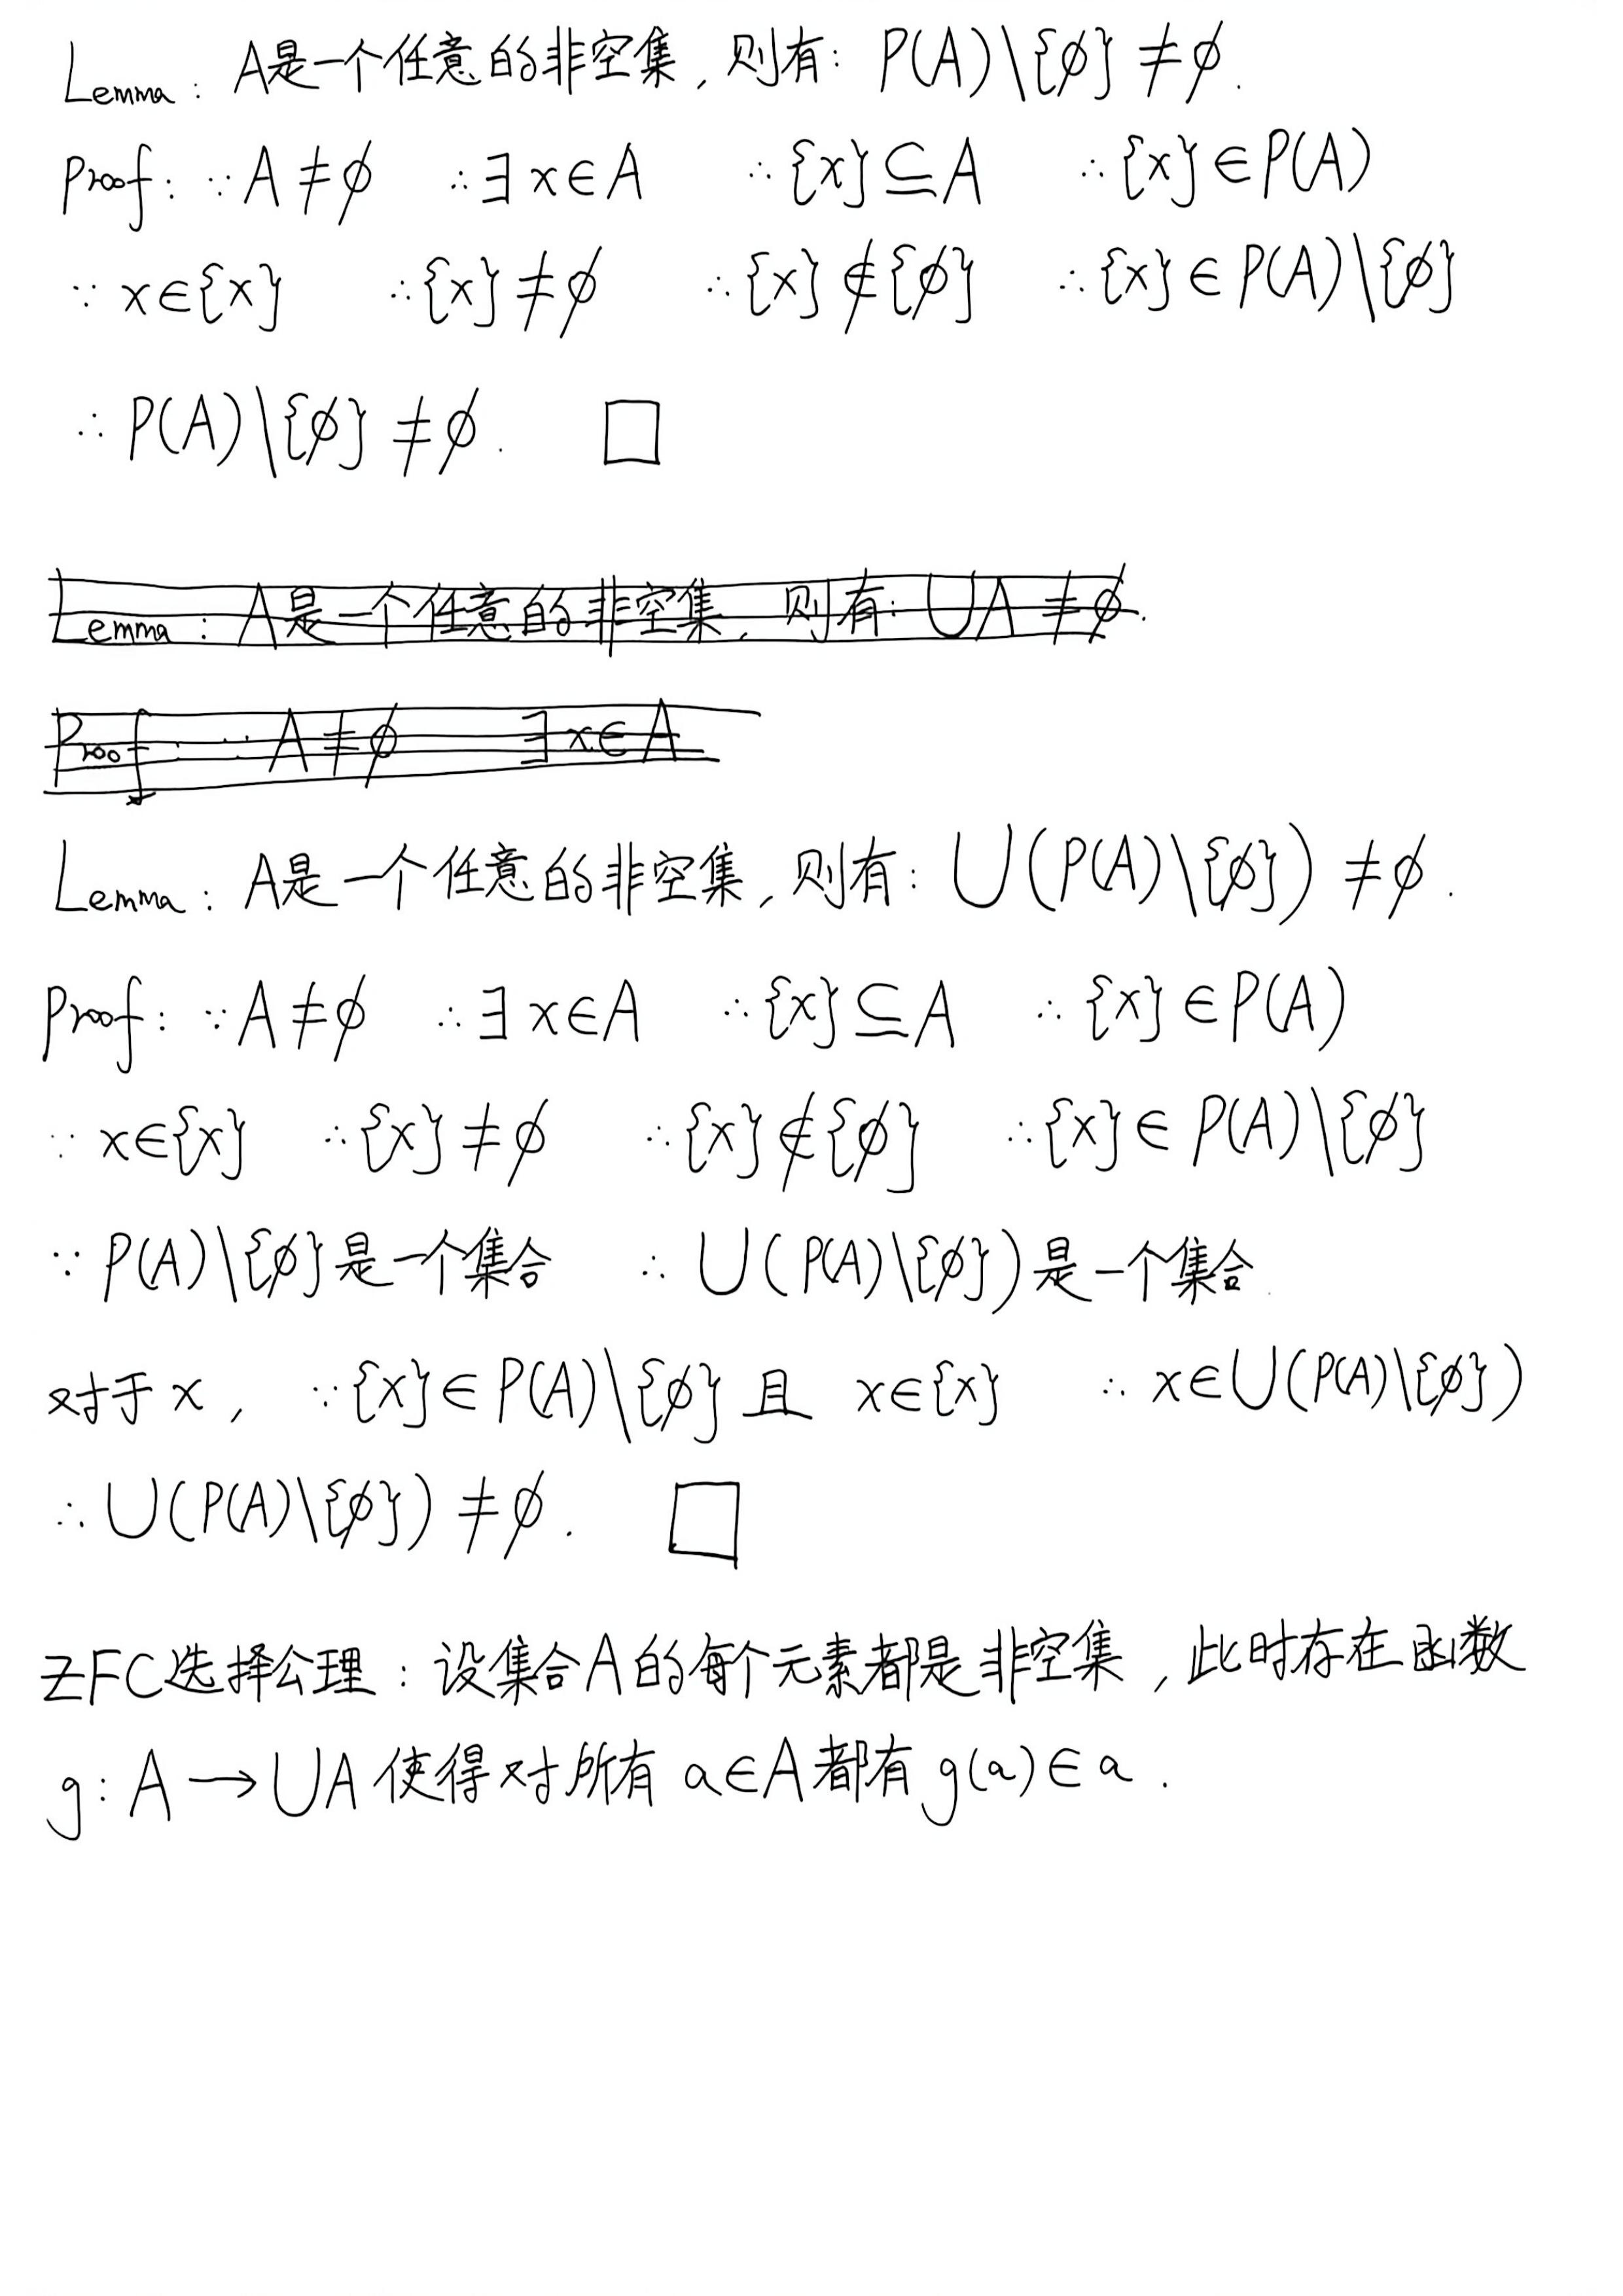 Lemma: A是一个任意的非空集, 则有: P(A)\{∅}≠∅.
Proof: ∵A≠∅ ∴∃x∈A ∴{x}⊆A ∴{x}∈P(A)
∵x∈{x} ∴{x}≠∅ ∴{x}∉{∅} ∴{x}∈P(A)\{∅}
∴P(A)\{∅}≠∅. □
Lemma: A是一个任意的非空集, 则有: ∪A≠∅.
Proof: ∵A≠∅ ∃x∈A
Lemma: A是一个任意的非空集, 则有: ∪(P(A)\{∅})≠∅.
Proof: ∵A≠∅ ∴∃x∈A ∴{x}⊆A ∴{x}∈P(A)
∵x∈{x} ∴{x}≠∅ ∴{x}∉{∅} ∴{x}∈P(A)\{∅}
∵P(A)\{∅}是一个集合 ∴∪(P(A)\{∅})是一个集合.
对于x, ∵{x}∈P(A)\{∅}且 x∈{x} ∴x∈∪(P(A)\{∅})
∴∪(P(A)\{∅})≠∅. □
ZFC选择公理: 设集合A的每个元素都是非空集, 此时存在函数
g: A→∪A 使得对所有 a∈A都有g(a)∈a.